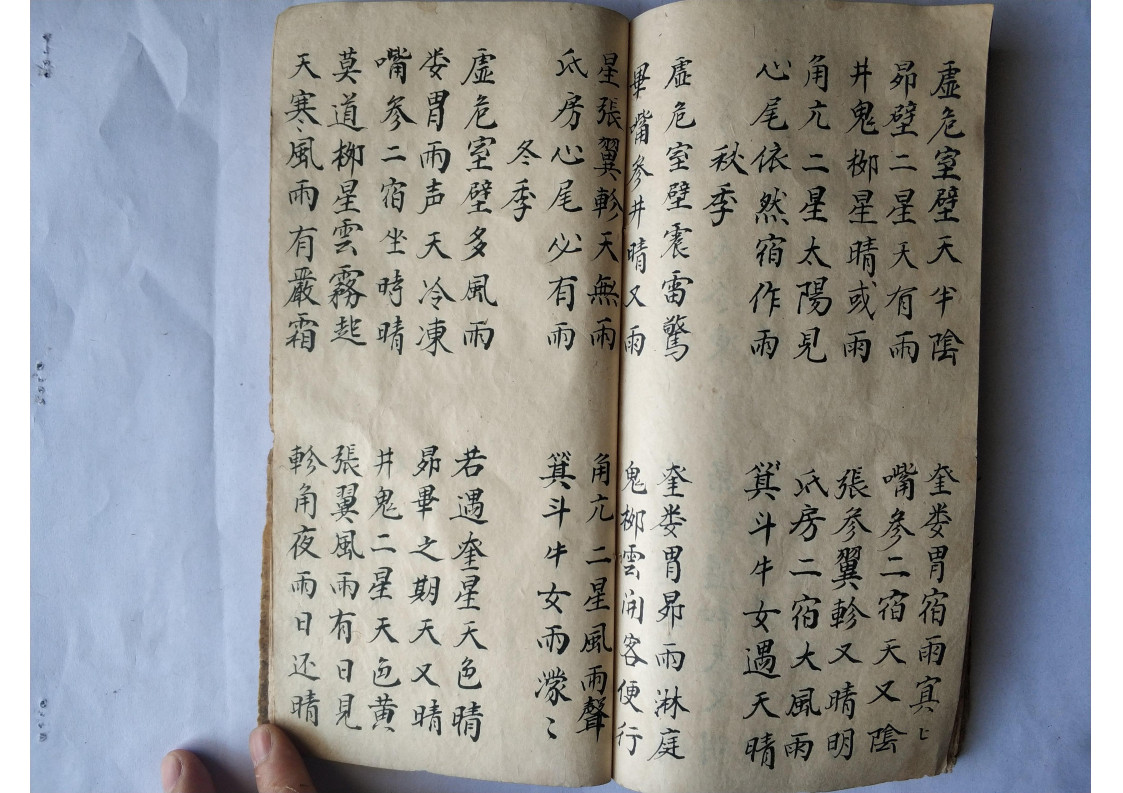 虚危室壁天半陰
奎娄胃宿雨㝠匕
昴壁二星天有雨
嘴参二宿天又陰
井鬼柳星晴或雨
張参翼軫又晴明
角亢二星太陽見
氐房二宿大風雨
心尾依然宿作雨
箕斗牛女遇天晴
秋季
虚危室壁震雷驚
奎娄胃昴雨淋庭
畢嘴参井晴又雨
鬼柳雲開客便行
星張翼軫天無雨
角亢二星風雨聲
氐房心尾必有雨
箕斗牛女雨濛〻
冬季
虚危室壁多風雨
若遇奎星天色晴
娄胃雨声天冷凍
昴畢之期天又晴
嘴参二宿坐時晴
井鬼二星天色黄
莫道柳星雲霧起
張翼風雨有日見
天寒風雨有嚴霜
軫角夜雨日还晴